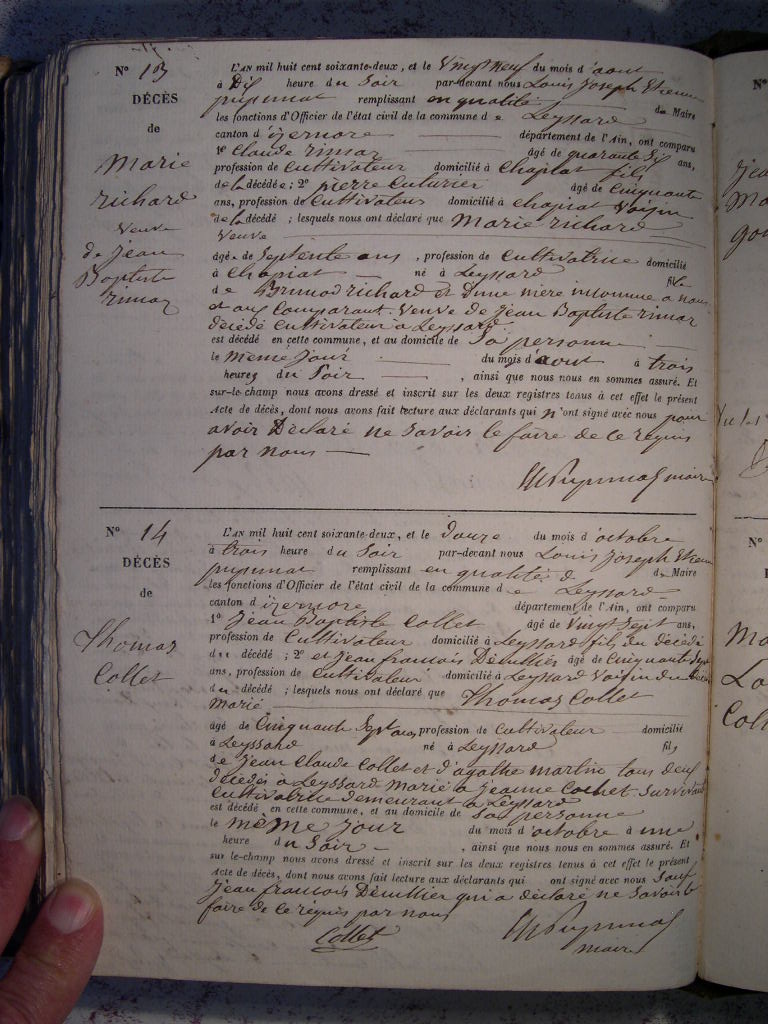 N° 13
DÉCÈS
de
Marie
richard
Veuve
de jean
Baptiste
rimaz
L'AN mil huit cent soixante-deux, et le Vingt neuf du mois d'aout
à Dix heure du Soir par-devant nous Louis Joseph Etienne
puynmat remplissant en qualité de Maire
les fonctions d'Officier de l'état civil de la commune de Leyssard
canton d'izernore département de l'Ain, ont comparu
1° Claude rimaz âgé de quarante Six ans,
profession de Cultivateur domicilié à Chapiat fils
de la décédée; 2° pierre Cuturier âgé de Cinquante
ans, profession de Cultivateur domicilié à chapiat Voisin
de la décédé ; lesquels nous ont déclaré que Marie richard
Veuve
âgé e de Septente ans, profession de Cultivatrice domicilié
à Chapiat né à Leyssard fille
de richard et D'une mère inconnue a nous
et aux Comparant. Veuve de Jean Baptiste rimaz
décédé Cultivateur a Leyssard
est décédé en cette commune, et au domicile de Sa personne
le même jour du mois d'aout à trois
heures du Soir, ainsi que nous nous en sommes assuré. Et
sur-le-champ nous avons dressé et inscrit sur les deux registres tenus à cet effet le présent
Acte de décès, dont nous avons fait lecture aux déclarants qui n'ont signé avec nous pour
avoir Déclaré ne Savoir le faire de ce réquis
par nous
maire
N° 14
DÉCÈS
de
Thomas
Collet
L'AN mil huit cent soixante-deux, et le douze du mois d'octobre
à trois heure du Soir par-devant nous Louis Joseph Etienne
puynmat remplissant en qualité d de Maire
les fonctions d'Officier de l'état civil de la commune de Leyssard
canton d'izernore département de l'Ain, ont comparu
1° Jean Baptiste Collet âgé de Vingt Sept ans,
profession de Cultivateur domicilié à Leyssard fils du décédé
du décédé ; 2° et Jean francois Décullier âgé de Cinquante Sept
ans, profession de Cultivateur domicilié à Leyssard Voisin du décédé
du décédé ; lesquels nous ont déclaré que Thomas Collet
Marié
âgé de Cinquante Sept ans, profession de Cultivateur domicilié
à Leyssard né à Leyssard fils
de Jean Claude Collet et d'agathe martin tous deux
décédés a Leyssard Marié a Jeanne Cochet Survivant
Cultivatrice demeurant a Leyssard
est décédé en cette commune, et au domicile de Sa personne
le même jour du mois d'octobre à une
heure du Soir, ainsi que nous nous en sommes assuré. Et
sur le-champ nous avons dressé et inscrit sur les deux registres tenus à cet effet le présent
Acte de décès, dont nous avons fait lecture aux déclarants qui ont signé avec nous Sauf
Jean francois Décullier qui a déclaré ne Savoir le
faire de ce réquis par nous
Collet
maire